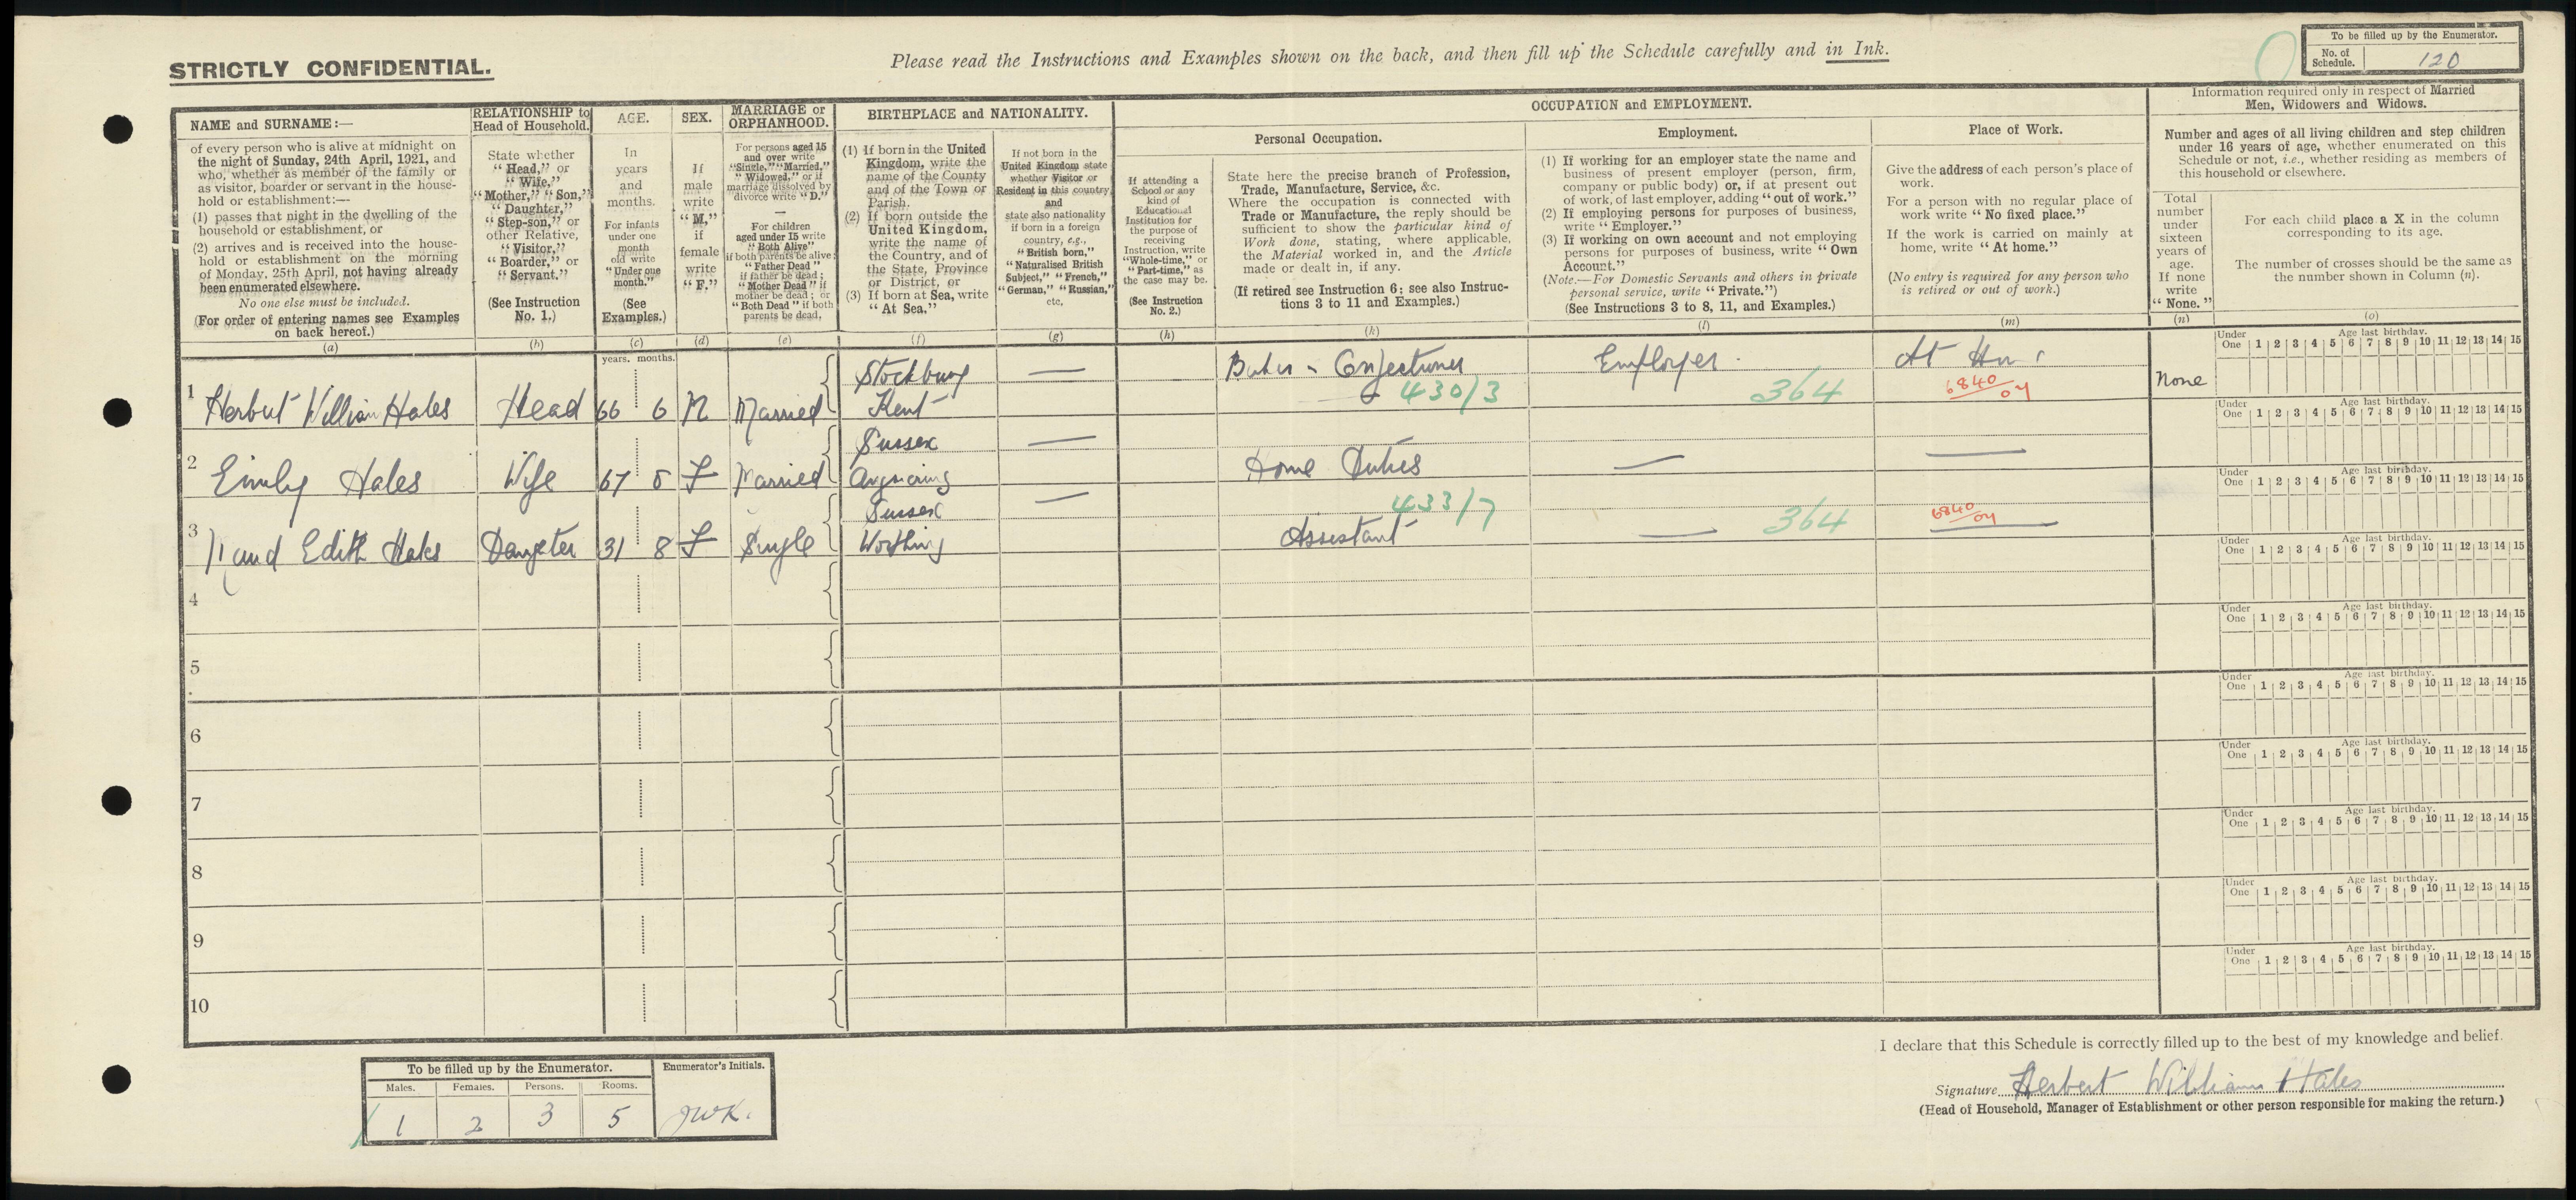 STRICTLY CONFIDENTIAL.
Please read the Instructions and Examples shown on the back, and then fill up the Schedule carefully and in Ink.
To be filled up by the Enumerator.
No. of Schedule. 120
NAME and SURNAME:—
of every person who is alive at midnight on
the night of Sunday, 24th April, 1921, and
who, whether as member of the family or
as visitor, boarder or servant in the house-
hold or establishment:—
(1) passes that night in the dwelling of the
household or establishment, or
(2) arrives and is received into the house-
hold or establishment on the morning
of Monday, 25th April, not having already
been enumerated elsewhere.
No one else must be included.
(For order of entering names see Examples
on back hereof.)
(a)
RELATIONSHIP to
Head of Household.
State whether
"Head," or
"Wife,"
"Mother," "Son,"
"Daughter,"
"Step-son," or
other Relative,
"Visitor,"
"Boarder," or
"Servant."
(See Instruction
No. 1.)
(b)
AGE.
In
years
and
months.
For infants
under one
month
old write
"Under one
month."
(See
Examples.)
(c)
SEX.
If
male
write
"M,"
if
female
write
"F."
(d)
MARRIAGE or
ORPHANHOOD.
For persons aged 15
and over write
"Single," "Married,"
"Widowed," or if
marriage dissolved by
divorce write "D."
—
For children
aged under 15 write
"Both Alive"
if both parents be alive;
"Father Dead"
if father be dead;
"Mother Dead" if
mother be dead; or
"Both Dead" if both
parents be dead.
(e)
BIRTHPLACE and NATIONALITY.
(1) If born in the United
Kingdom, write the
name of the County
and of the Town or
Parish.
(2) If born outside the
United Kingdom,
write the name of
the Country, and of
the State, Province
or District, or
(3) If born at Sea, write
"At Sea."
(f)
If not born in the
United Kingdom state
whether Visitor or
Resident in this country,
and
state also nationality
if born in a foreign
country, e.g.,
"British born,"
"Naturalised British
Subject," "French,"
"German," "Russian,"
etc.
(g)
OCCUPATION and EMPLOYMENT.
Personal Occupation.
If attending a
School or any
kind of
Educational
Institution for
the purpose of
receiving
Instruction, write
"Whole-time," or
"Part-time," as
the case may be.
(See Instruction
No. 2.)
(h)
State here the precise branch of Profession,
Trade, Manufacture, Service, &c.
Where the occupation is connected with
Trade or Manufacture, the reply should be
sufficient to show the particular kind of
Work done, stating, where applicable,
the Material worked in, and the Article
made or dealt in, if any.
(If retired see Instruction 6; see also Instruc-
tions 3 to 11 and Examples.)
(k)
Employment.
(1) If working for an employer state the name and
business of present employer (person, firm,
company or public body) or, if at present out
of work, of last employer, adding "out of work."
(2) If employing persons for purposes of business,
write "Employer."
(3) If working on own account and not employing
persons for purposes of business, write "Own
Account."
(Note.—For Domestic Servants and others in private
personal service, write "Private.")
(See Instructions 3 to 8, 11, and Examples.)
(l)
Place of Work.
Give the address of each person's place of
work.
For a person with no regular place of
work write "No fixed place."
If the work is carried on mainly at
home, write "At home."
(No entry is required for any person who
is retired or out of work.)
(m)
Information required only in respect of Married
Men, Widowers and Widows.
Number and ages of all living children and step children
under 16 years of age, whether enumerated on this
Schedule or not, i.e., whether residing as members of
this household or elsewhere.
Total
number
under
sixteen
years of
age.
If none
write
"None."
(n)
For each child place a X in the column
corresponding to its age.
The number of crosses should be the same as
the number shown in Column (n).
(o)
years. months.
Under One Age last birthday. 1 2 3 4 5 6 7 8 9 10 11 12 13 14 15
1 Herbert William Hales Head 66 6 M Married Stockbury Kent — Baker Confectioner 430/3 Employer 364 At 6840/04 None
Under One Age last birthday. 1 2 3 4 5 6 7 8 9 10 11 12 13 14 15
2 Emily Hales Wife 67 5 F Married Sussex Angmering — Home Duties — —
Under One Age last birthday. 1 2 3 4 5 6 7 8 9 10 11 12 13 14 15
3 Maud Edith Hales Daugter 31 8 F Single Sussex Worthing — 433/7 Assistant — 364 6840/04 —
Under One Age last birthday. 1 2 3 4 5 6 7 8 9 10 11 12 13 14 15
4
Under One Age last birthday. 1 2 3 4 5 6 7 8 9 10 11 12 13 14 15
5
Under One Age last birthday. 1 2 3 4 5 6 7 8 9 10 11 12 13 14 15
6
Under One Age last birthday. 1 2 3 4 5 6 7 8 9 10 11 12 13 14 15
7
Under One Age last birthday. 1 2 3 4 5 6 7 8 9 10 11 12 13 14 15
8
Under One Age last birthday. 1 2 3 4 5 6 7 8 9 10 11 12 13 14 15
9
Under One Age last birthday. 1 2 3 4 5 6 7 8 9 10 11 12 13 14 15
10
I declare that this Schedule is correctly filled up to the best of my knowledge and belief.
Signature Herbert William Hales
(Head of Household, Manager of Establishment or other person responsible for making the return.)
To be filled up by the Enumerator.
Enumerator's Initials.
Males. Females. Persons. Rooms.
1 2 3 5 JWK.